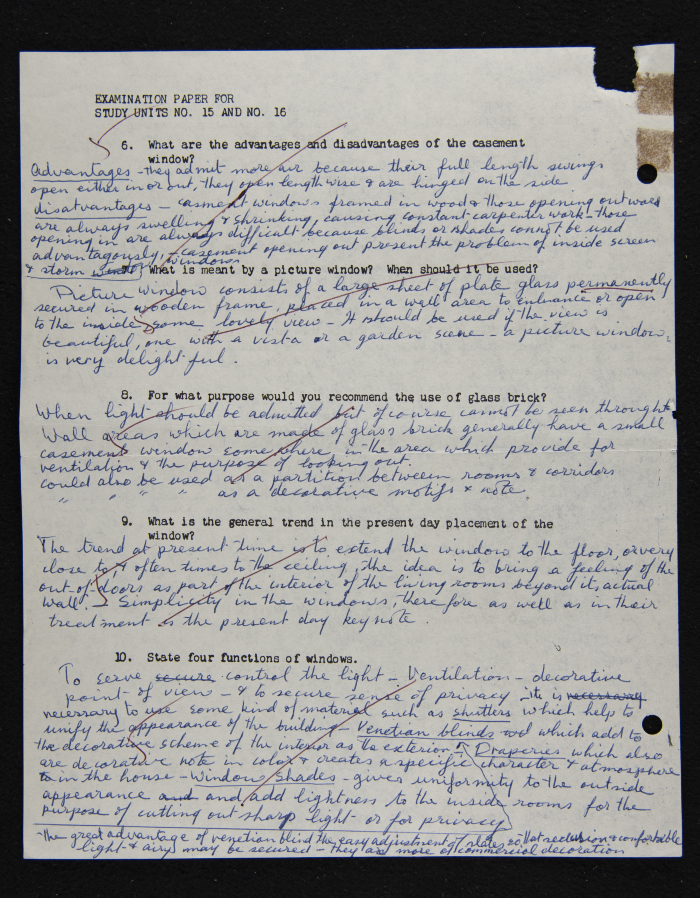 EXAMINATION PAPER FOR
STUDY UNITS NO. 15 AND NO. 16
6. What are the advantages and disadvantages of the casement
window?
Advantages - they admit more air because their full length swings
open either in or out, they open length wise & are hinged on the side
disatvantages - casment windows framed in wood & those opening outward
are always swelling & shrinking, causing constant carpenter work - those
opening in are always difficult because blinds or shades connot be used
advantagously, - casement opening out present the problem of inside screen
& storm windows
7. What is meant by a picture window? When should it be used?
Picture window consists of a large sheet of plate glass permanently
secured in wooden frame, placed in a wall area to enhance or open
to the inside some lovely view - It should be used if the view is
beautiful, one with a vista or a garden scene - a picture window,
is very delight-ful.
8. For what purpose would you recommend the use of glass brick?
When light should be admitted but of course cannot be seen through
Wall areas which are made of glass brick generally have a small
casement window some where in the area which provide for
ventilation & the purpose of looking out.
could also be used as a partition between rooms & corridors
" " " " as a decorative motifs & note.
9. What is the general trend in the present day placement of the
window?
The trend at present time is to extend the window to the floor, or very
close to, & often times to the ceiling, the idea is to bring a feeling of the
out-of-doors as part of the interior of the living rooms beyond its actual
wall. - Simplicity in the windows, therefore as well as in their
treatment is the present day keynote.
10. State four functions of windows.
To serve secure control the light - Ventilation - decorative
point of view - & to secure sense of privacy it is necessary
necessary to use some kind of material such as shutters which helps to
unify the appearance of the building - Venetian blinds which add to
the decorative scheme of the interior as the exterior. Draperies which also
are decorative note in color & creates a specific character & atmosphere
in the house - Window Shades - gives uniformity to the outside
appearance and and add lightness to the inside rooms for the
purpose of cutting out sharp light - or for privacy
The great advantage of venetian blind the easy adjustment of slates so that seclusion & comfortable
light & airy may be secured - they are more of commercial decoration